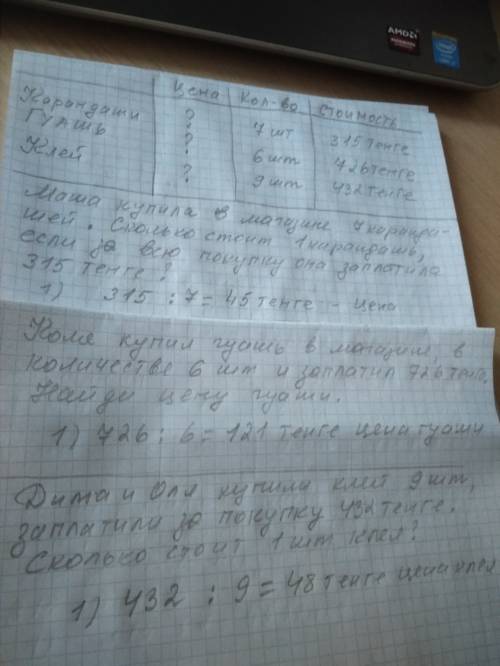 AMD
intel
Цена Кол-во Стоимость
Карандаши ? 7 шт 315 тенге
Гуашь ? 6 шт 726 тенге
Клей ? 9 шт 432 тенге
Маша купила в магазине 7 каранда-
шей. Сколько стоит 1 карандашь,
если за всю покупку она заплатила
315 тенге?
1) 315 : 7 = 45 тенге - цена
Коля купил гуашь в магазин, в
количестве 6 шт и заплатил 726 тенге.
Найди цену гуаши.
1) 726 : 6 = 121 тенге цена гуаши
Дима и Оля купили клей 9 шт,
заплатили за покупку 432 тенге.
Сколько стоит 1 шт клея?
1) 432 : 9 = 48 тенге цена клея